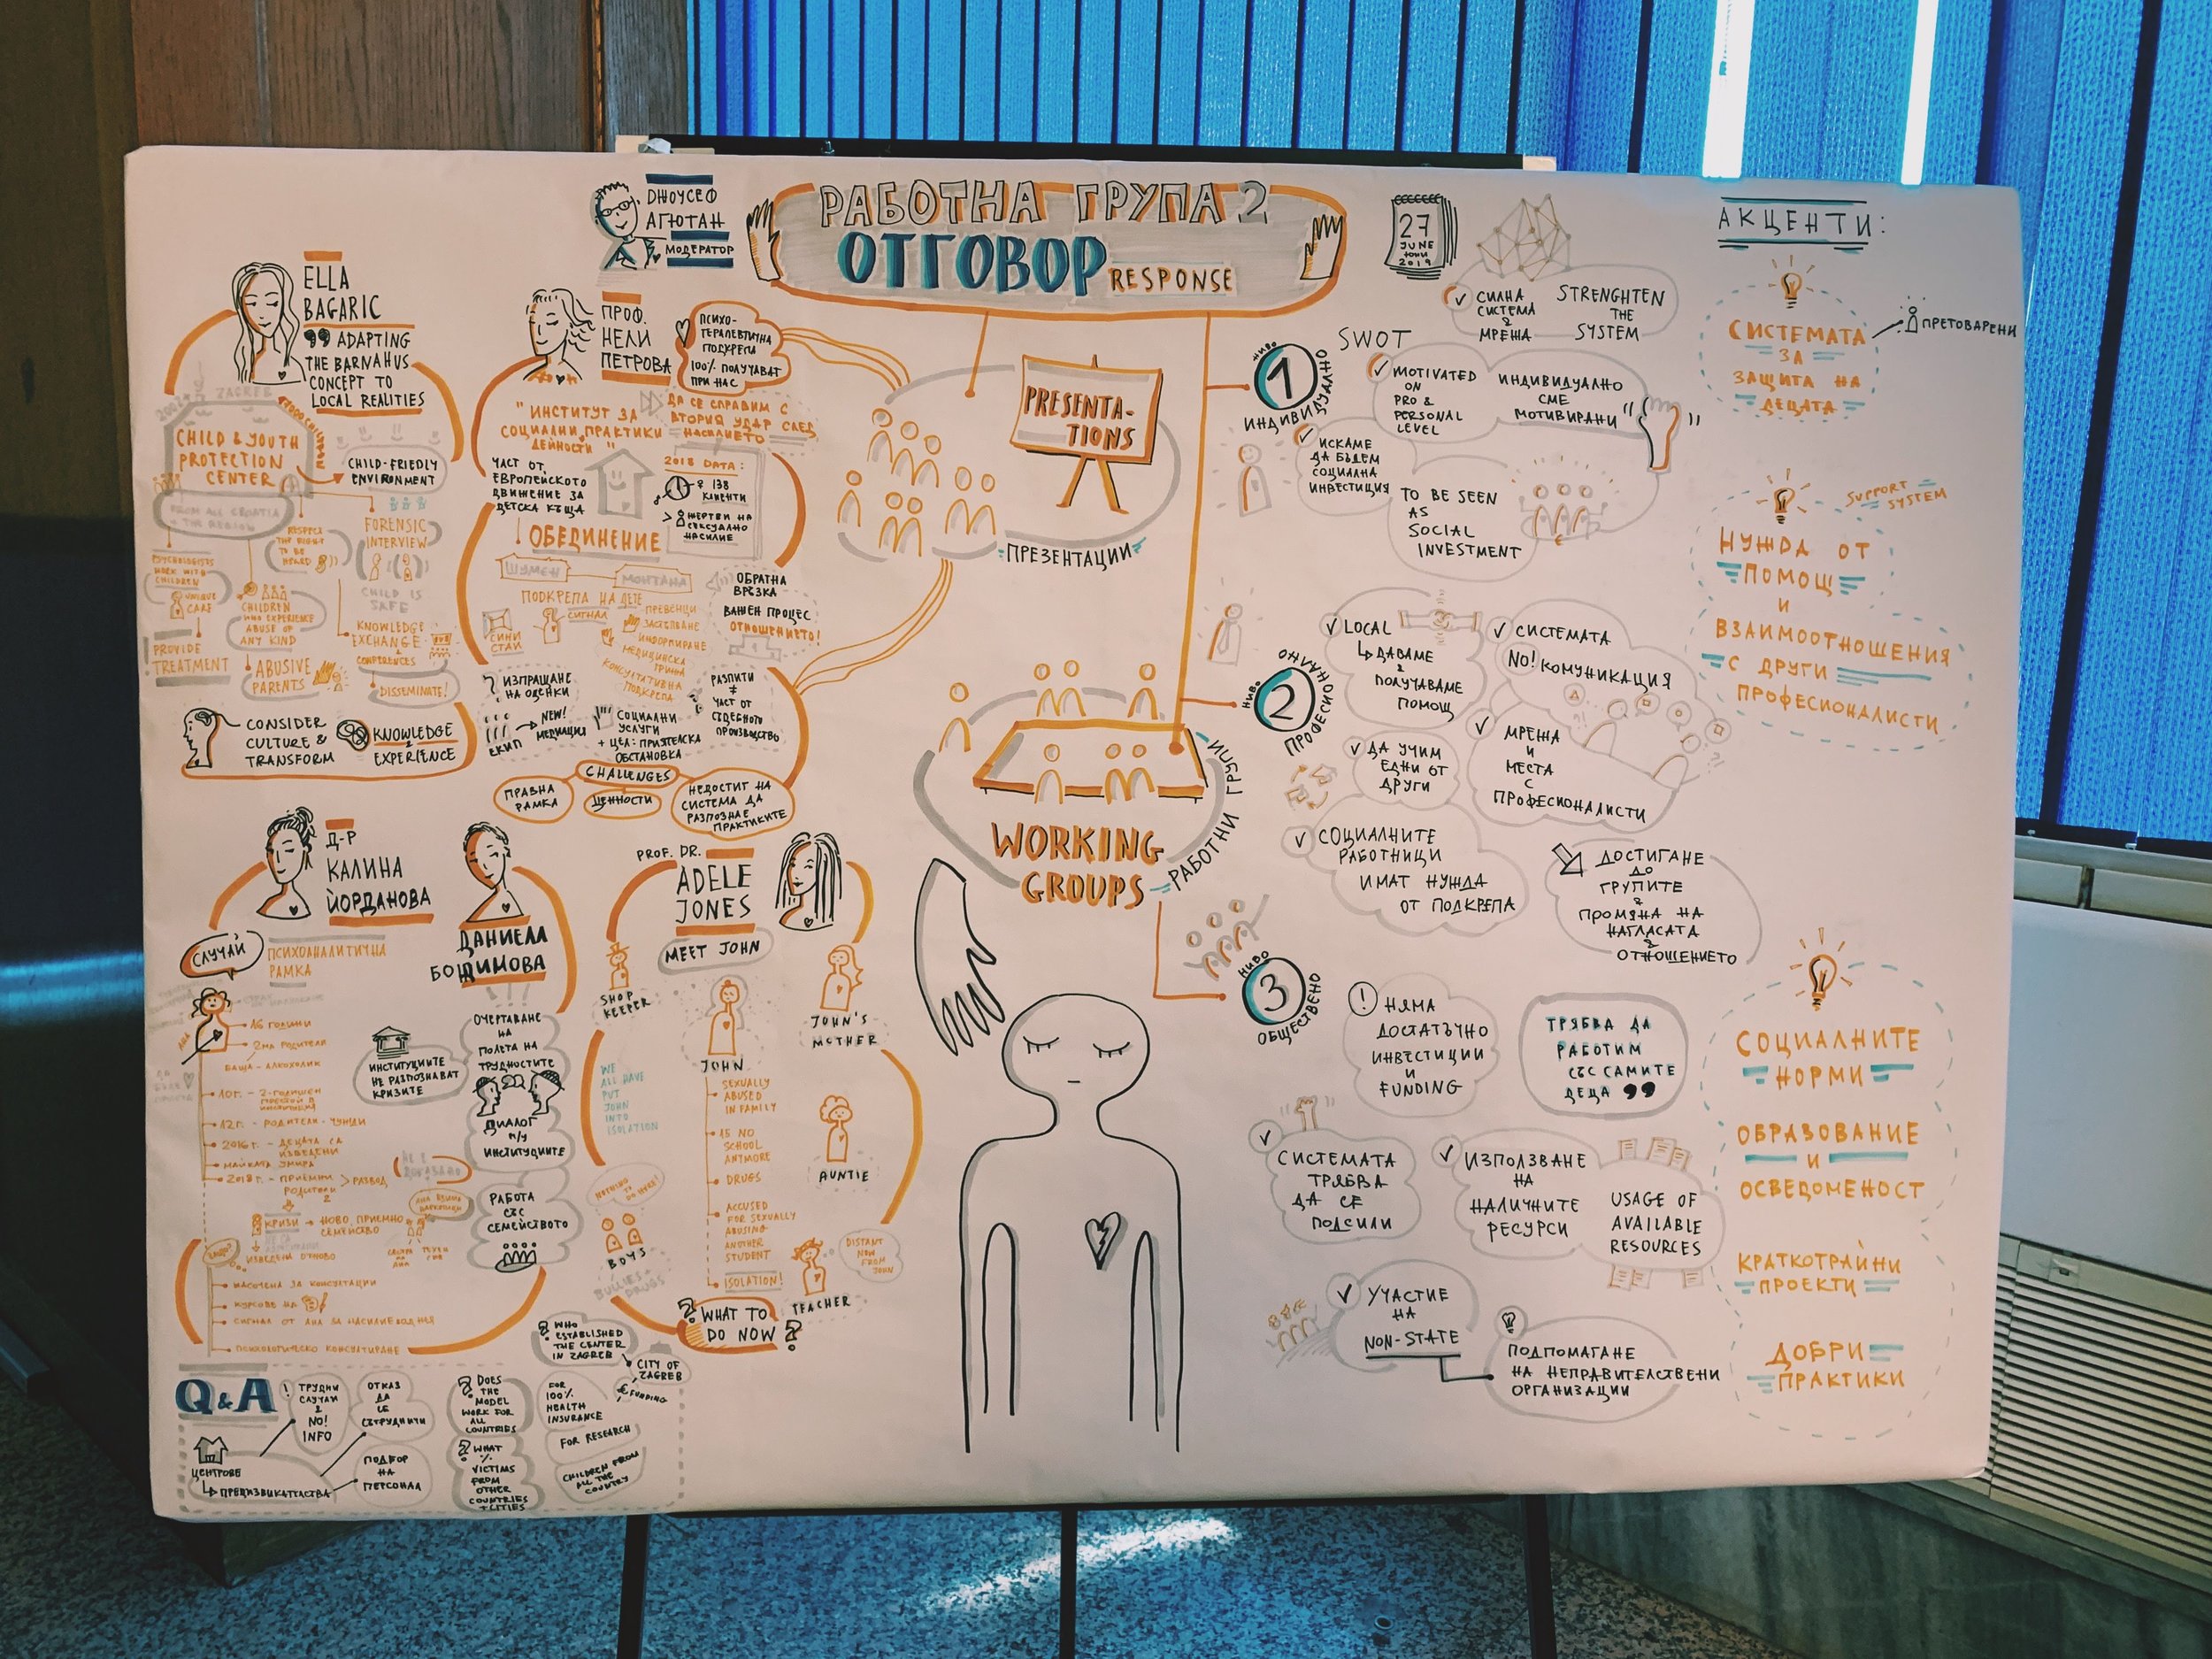 ДЖОУСЕФ
АГЮТАН
МОДЕРАТОР
РАБОТНА ГРУПА 2
ОТГОВОР RESPONSE
27
JUNE
ЮНИ
2019
ELLA
BAGARIC
ADAPTING
THE BARNAHUS
CONCEPT TO
LOCAL REALITIES
ZAGREB
CHILD & YOUTH
PROTECTION
CENTER
CHILD-FRIENDLY
ENVIRONMENT
FROM ALL CROATIA
+ THE REGION
RESPECT
THE RIGHT
TO BE
HEARD
FORENSIC
INTERVIEW
CHILD IS
SAFE
PSYCHOLOGISTS
WORK WITH
CHILDREN
UNIQUE
CASE
PROVIDE
TREATMENT
CHILDREN
WHO EXPERIENCE
ABUSE OF
ANY KIND
ABUSIVE
PARENTS
KNOWLEDGE
EXCHANGE
CONFERENCES
DISSEMINATE!
CONSIDER
CULTURE &
TRANSFORM
KNOWLEDGE
&
EXPERIENCE
ПРОФ.
НЕЛИ
ПЕТРОВА
ПСИХО-
ТЕРАПЕВТИЧНА
ПОДКРЕПА
100% ПОЛУЧАВАТ
ПРИ НАС
"ИНСТИТУТ ЗА
СОЦИАЛНИ ПРАКТИКИ
ДЕЙНОСТИ"
ДА СЕ СПРАВИМ С
ВТОРИЯ УДАР СЛЕД
НАСИЛИЕТО
ЧАСТ ОТ
ЕВРОПЕЙСКОТО
ДВИЖЕНИЕ ЗА
ДЕТСКА КЪЩА
2018 DATA:
138
КЛИЕНТИ
> ЖЕРТВИ НА
СЕКСУАЛНО
НАСИЛИЕ
ОБЕДИНЕНИЕ
ШУМЕН
МОНТАНА
ПОДКРЕПА НА ДЕТЕ
СИНИ
СТАИ
СИГНАЛ
ЗАСТЪПВАНЕ
ИНФОРМИРАНЕ
МЕДИЦИНСКА
ГРИЖА
КОНСУЛТАТИВНА
ПОДКРЕПА
ОБРАТНА
ВРЪЗКА
ВАЖЕН ПРОЦЕС
ОТНОШЕНИЕТО!
? ИЗПРАЩАНЕ
НА ОЦЕНКИ
ЕКИП
NEW!
МЕДИАЦИЯ
СОЦИАЛНИ
УСЛУГИ
+ ЦЕЛ: ПРИЯТЕЛСКА
ОБСТАНОВКА
РАЗПИТИ
≠
ЧАСТ ОТ
СЪДЕБНОТО
ПРОИЗВОДСТВО
CHALLENGES
ПРАВНА
РАМКА
ЦЕННОСТИ
НЕДОСТИГ НА
СИСТЕМА ДА
РАЗПОЗНАЕ
ПРАКТИКИТЕ
PRESENTA-
TIONS
ПРЕЗЕНТАЦИИ
WORKING
GROUPS
РАБОТНИ ГРУПИ
Д-Р
КАЛИНА
ЙОРДАНОВА
ДАНИЕЛА
БОЖИМОВА
СЛУЧАЙ
ПСИХОАНАЛИТИЧНА
РАМКА
16 ГОДИНИ
2МА РОДИТЕЛИ
БАЩА - АЛКОХОЛИК
12 Г. - РОДИТЕЛИ - ЧУЖДИ
2016 Г. - ДЕЦАТА СА
ИЗВЕДЕНИ
МАЙКАТА УМИРА
2018 Г. - ПРИЕМНИ
РОДИТЕЛИ
> РАЗВОД
2
КРИЗИ → НОВО ПРИЕМНО
СЕМЕЙСТВО
ИЗВЕДЕНИ ОТНОВО
НАСОЧЕНА ЗА КОНСУЛТАЦИИ
КУРСОВЕ НА
СИГНАЛ ОТ АНА ЗА НАСИЛИЕ
ПСИХОЛОГИЧЕСКО КОНСУЛТИРАНЕ
ИНСТИТУЦИИТЕ
НЕ РАЗПОЗНАВАТ
КРИЗИТЕ
ОЧЕРТАВАНЕ
НА
ПОЛЕТА НА
ТРУДНОСТИТЕ
ДИАЛОГ
М/У
ИНСТИТУЦИИТЕ
РАБОТА
СЪС
СЕМЕЙСТВОТО
PROF. DR.
ADELE
JONES
MEET JOHN
SHOP
KEEPER
JOHN'S
MOTHER
JOHN
SEXUALLY
ABUSED
IN FAMILY
15 NO
SCHOOL
ANYMORE
DRUGS
ACCUSED
FOR SEXUALLY
ABUSING
ANOTHER
STUDENT
ISOLATION!
WE
ALL HAVE
PUT
JOHN
INTO
ISOLATION
NOTHING
TO DO HERE!
BOYS
BULLIES +
DRUGS
AUNTIE
DISTANT
NOW
FROM
JOHN
TEACHER
? WHAT TO
DO NOW ?
Q & A
! ТРУДНИ
СЛУЧАИ
&
NO!
INFO
ОТКАЗ
ДА
СЕ
СЪТРУДНИЧИ
ЦЕНТРОВЕ
ПРЕДИЗВИКАТЕЛСТВА
ПОДБОР
НА
ПЕРСОНАЛ
? DOES
THE
MODEL
WORK FOR
ALL
COUNTRIES
? WHAT
%
VICTIMS
FROM
OTHER
COUNTRIES
+ CITIES
? WHO
ESTABLISHED
THE CENTER
IN ZAGREB
CITY OF
ZAGREB
€ FUNDING
FOR
100%
HEALTH
INSURANCE
FOR RESEARCH
CHILDREN FROM
ALL THE
COUNTRY
SWOT
НИВО
1
ИНДИВИДУАЛНО
СИЛНА
СИСТЕМА
&
МРЕЖА
STRENGHTEN
THE
SYSTEM
MOTIVATED
ON
PRO &
PERSONAL
LEVEL
ИНДИВИДУАЛНО
СМЕ
МОТИВИРАНИ
ИСКАМЕ
ДА БЪДЕМ
СОЦИАЛНА
ИНВЕСТИЦИЯ
TO BE SEEN
AS
SOCIAL
INVESTMENT
НИВО
2
ПРОФЕСИОНАЛНО
LOCAL
ДАВАМЕ
&
ПОЛУЧАВАМЕ
ПОМОЩ
СИСТЕМАТА
NO! КОМУНИКАЦИЯ
ДА УЧИМ
ЕДНИ ОТ
ДРУГИ
МРЕЖА
И
МЕСТА
С
ПРОФЕСИОНАЛИСТИ
СОЦИАЛНИТЕ
РАБОТНИЦИ
ИМАТ НУЖДА
ОТ ПОДКРЕПА
ДОСТИГАНЕ
ДО
ГРУПИТЕ
&
ПРОМЯНА НА
НАГЛАСАТА
&
ОТНОШЕНИЕТО
НИВО
3
ОБЩЕСТВЕНО
! НЯМА
ДОСТАТЪЧНО
ИНВЕСТИЦИИ
И
FUNDING
ТРЯБВА ДА
РАБОТИМ
СЪС САМИТЕ
ДЕЦА
СИСТЕМАТА
ТРЯБВА
ДА СЕ
ПОДСИЛИ
ИЗПОЛЗВАНЕ
НА
НАЛИЧНИТЕ
РЕСУРСИ
USAGE OF
AVAILABLE
RESOURCES
УЧАСТИЕ
НА
NON-STATE
ПОДПОМАГАНЕ
НА НЕПРАВИТЕЛСТВЕНИ
ОРГАНИЗАЦИИ
АКЦЕНТИ:
СИСТЕМАТА
ЗА
ЗАЩИТА НА
ДЕЦАТА
ПРЕТОВАРЕНИ
SUPPORT
SYSTEM
НУЖДА ОТ
ПОМОЩ
И
ВЗАИМООТНОШЕНИЯ
С ДРУГИ
ПРОФЕСИОНАЛИСТИ
СОЦИАЛНИТЕ
НОРМИ
ОБРАЗОВАНИЕ
И
ОСВЕДОМЕНОСТ
КРАТКОТРАЙНИ
ПРОЕКТИ
ДОБРИ
ПРАКТИКИ